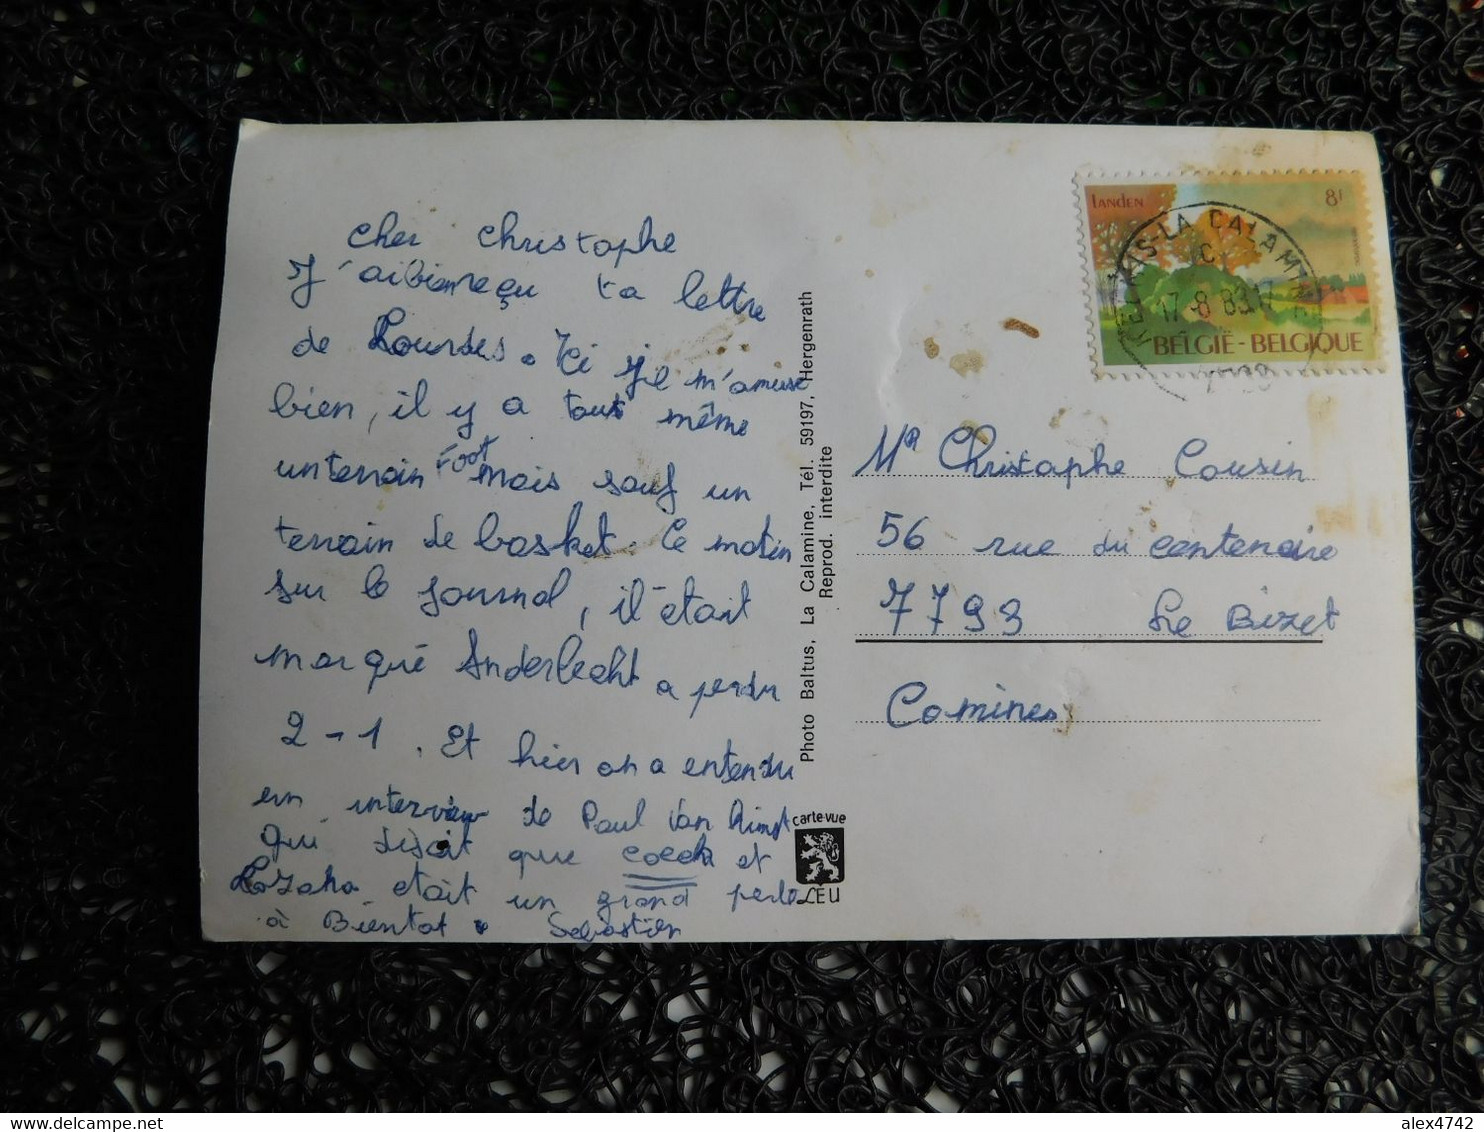 cher christophe
J'ai bien reçu ta lettre
de Lourdes. Ici je m'amuse
bien, il y a tout même
un terrain Foot mais sauf un
terrain de basket. Ce matin
sur le journal, il était
marqué Anderlecht a perdu
2-1. Et hier on a entendu
un interview de Paul Van Himst
qui disait que coeck et
Lozano était un grand perte
à Bientot Sébastien
Photo Baltus, La Calamine, Tél. 59197, Hergenrath
Reprod. interdite
carte-vue
LEU
Landen 8f
BELGIË-BELGIQUE
KELMIS-LA CALAMINE
17-8 83 17
Mr Christophe Cousin
56 rue du centenaire
7793 Le Bizet
Comines
alex4742